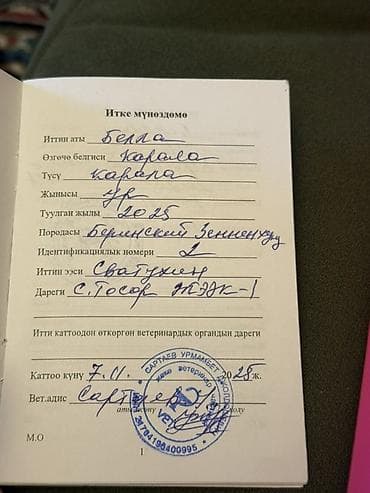 Итке мүнөздөмө
Иттин аты Белла
Өзгөчө белгиси карала
Түсү карала
Жынысы ур
Туулган жылы 2025
Породасы Бернский Зенненхунд
Идентификациялык номери 2
Иттин ээси Сватухин
Дареги с. Тосор ЖЭЭК-1
Итти каттоодон өткөргөн ветеринардык органдын дареги
Каттоо күнү 7.11. 2025ж.
Вет.адис Сартаев У.
аты-жөнү колу
САРТАЕВ УРМАМБЕТ
жеке ветеринар
VET
М.О
1